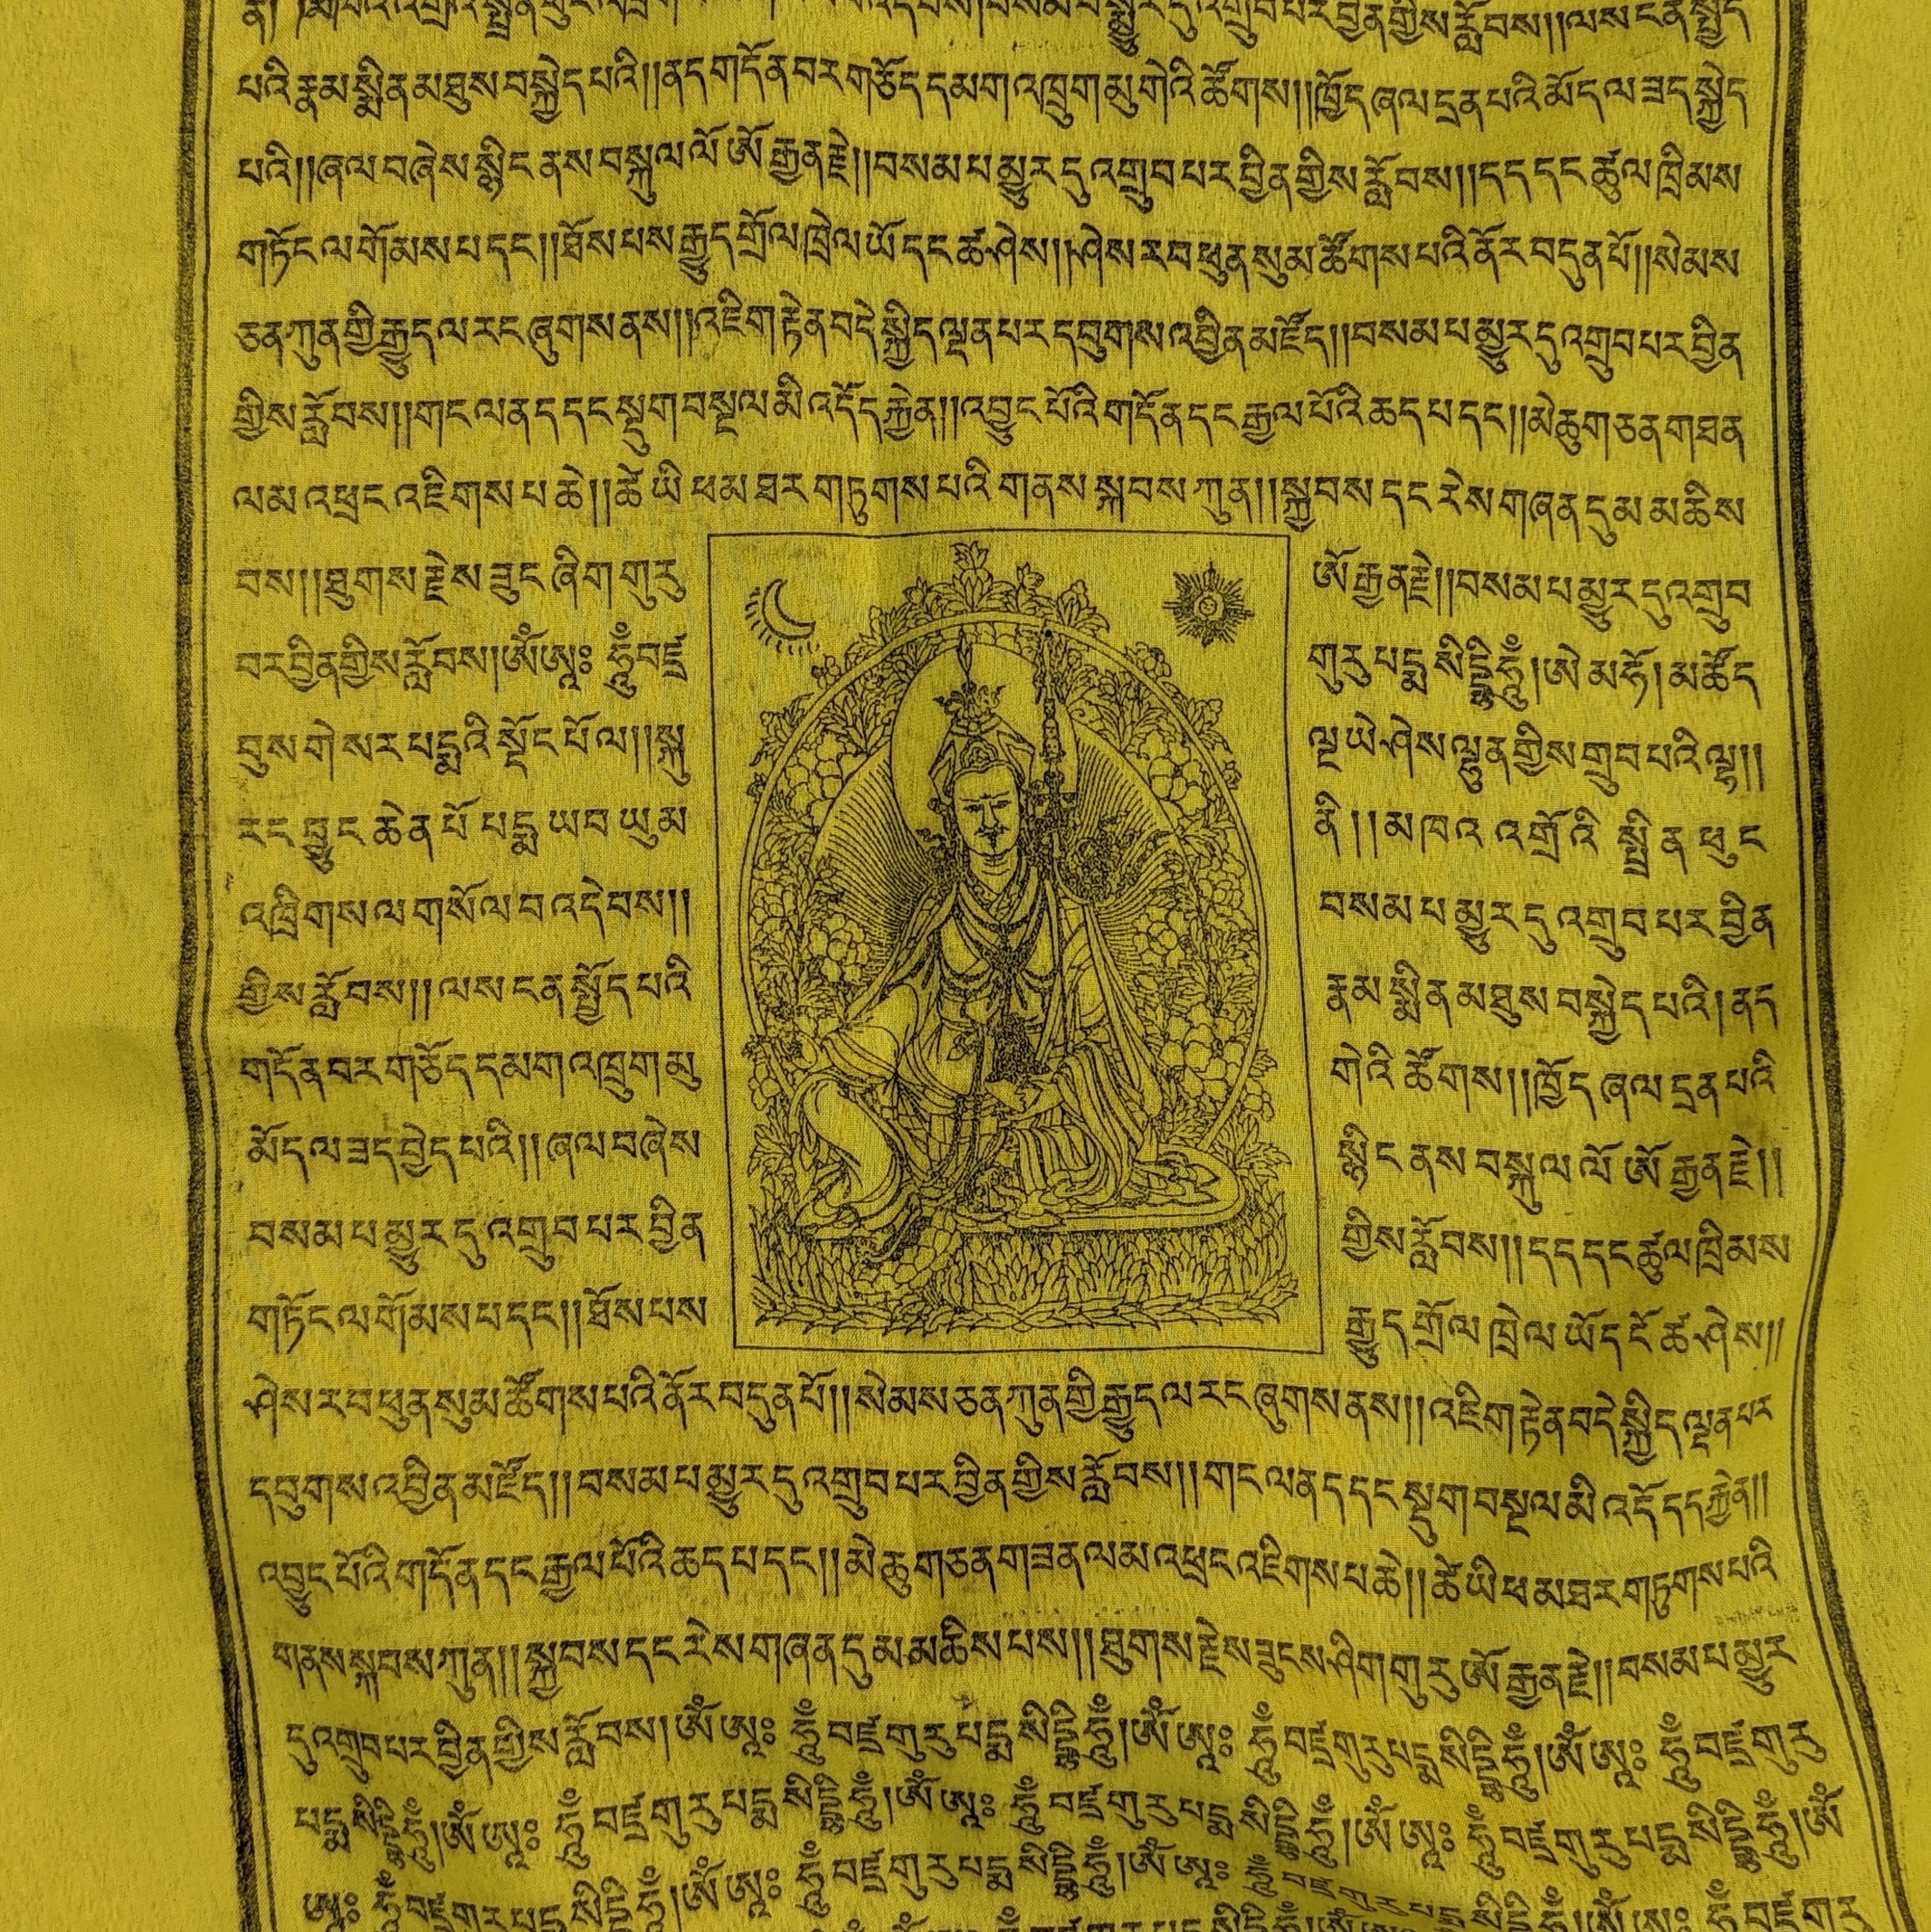 ན། །མཁའ་འགྲོའི་སྤྲིན་ཕུང་འཁྲིགས་ལ་གསོལ་བ་འདེབས། །བསམ་པ་མྱུར་དུ་འགྲུབ་པར་བྱིན་གྱིས་རློབས། །ལས་ངན་སྤྱོད
པའི་རྣམ་སྨིན་མཐུས་བསྐྱེད་པའི། །ནད་གདོན་བར་གཅོད་དམག་འཁྲུག་མུ་གེའི་ཚོགས། །ཁྱོད་ཞལ་དྲན་པའི་མོད་ལ་ཟད་སྐྱེད
པའི། །ཞལ་བཞེས་སྙིང་ནས་བསྐུལ་ལོ་ཨོ་རྒྱན་རྗེ། །བསམ་པ་མྱུར་དུ་འགྲུབ་པར་བྱིན་གྱིས་རློབས། །དད་དང་ཚུལ་ཁྲིམས
གཏོང་ལ་གོམས་པ་དང་། །ཐོས་པས་རྒྱུད་གྲོལ་ཁྲེལ་ཡོད་ང་ཚ་ཤེས། །ཤེས་རབ་ཕུན་སུམ་ཚོགས་པའི་ནོར་བདུན་པོ། །སེམས
ཅན་ཀུན་གྱི་རྒྱུད་ལ་རང་ཞུགས་ནས། །འཇིག་རྟེན་བདེ་སྐྱིད་ལྡན་པར་དབུགས་འབྱིན་མཛོད། །བསམ་པ་མྱུར་དུ་འགྲུབ་པར་བྱིན
གྱིས་རློབས། །གང་ལ་ནད་དང་སྡུག་བསྔལ་མི་འདོད་རྐྱེན། །འབྱུང་པོའི་གདོན་དང་རྒྱལ་པོའི་ཆད་པ་དང་། །མེ་ཆུ་གཅན་གཟན
ལམ་འཕྲང་འཇིགས་པ་ཆེ། །ཚེ་ཡི་ཕ་མཐར་གཏུགས་པའི་གནས་སྐབས་ཀུན། །སྐྱབས་དང་རེ་ས་གཞན་དུ་མ་མཆིས
བས། །ཐུགས་རྗེས་ཟུང་ཞིག་གུ་རུ ཨོ་རྒྱན་རྗེ། །བསམ་པ་མྱུར་དུ་འགྲུབ
བར་བྱིན་གྱིས་རློབས། ཨོཾ་ཨཱཿ ཧཱུྂ་བཛྲ གུ་རུ་པདྨ་སིདྡྷི་ཧཱུྂ། ཨེ་མ་ཧོ། མཚོ་ད
བུས་གེ་སར་པདྨའི་སྡོང་པོ་ལ། །སྐུ ལྔ་ཡེ་ཤེས་ལྷུན་གྱིས་གྲུབ་པའི་ལྷ། །
རང་བྱུང་ཆེན་པོ་པདྨ་ཡབ་ཡུམ ནི། །མཁའ་འགྲོའི་སྤྲིན་ཕུང
འཁྲིགས་ལ་གསོལ་བ་འདེབས། ། བསམ་པ་མྱུར་དུ་འགྲུབ་པར་བྱིན
གྱིས་རློབས། །ལས་ངན་སྤྱོད་པའི རྣམ་སྨིན་མཐུས་བསྐྱེད་པའི། ནད
གདོན་བར་གཅོད་དམག་འཁྲུག་མུ གེའི་ཚོགས། །ཁྱོད་ཞལ་དྲན་པའི
མོད་ལ་ཟད་བྱེད་པའི། །ཞལ་བཞེས སྙིང་ནས་བསྐུལ་ལོ་ཨོ་རྒྱན་རྗེ། །
བསམ་པ་མྱུར་དུ་འགྲུབ་པར་བྱིན གྱིས་རློབས། །དད་དང་ཚུལ་ཁྲིམས
གཏོང་ལ་གོམས་པ་དང་། །ཐོས་པས རྒྱུད་གྲོལ་ཁྲེལ་ཡོད་ངོ་ཚ་ཤེས། །
ཤེས་རབ་ཕུན་སུམ་ཚོགས་པའི་ནོར་བདུན་པོ། །སེམས་ཅན་ཀུན་གྱི་རྒྱུད་ལ་རང་ཞུགས་ནས། །འཇིག་རྟེན་བདེ་སྐྱིད་ལྡན་པར
དབུགས་འབྱིན་མཛོད། །བསམ་པ་མྱུར་དུ་འགྲུབ་པར་བྱིན་གྱིས་རློབས། །གང་ལ་ནད་དང་སྡུག་བསྔལ་མི་འདོད་རྐྱེན། །
འབྱུང་པོའི་གདོན་དང་རྒྱལ་པོའི་ཆད་པ་དང་། །མེ་ཆུ་གཅན་གཟན་ལམ་འཕྲང་འཇིགས་པ་ཆེ། །ཚེ་ཡི་ཕ་མཐར་གཏུགས་པའི
གནས་སྐབས་ཀུན། །སྐྱབས་དང་རེ་ས་གཞན་དུ་མ་མཆིས་པས། །ཐུགས་རྗེས་ཟུངས་ཤིག་གུ་རུ་ཨོ་རྒྱན་རྗེ། །བསམ་པ་མྱུར
དུ་འགྲུབ་པར་བྱིན་གྱིས་རློབས། ཨོཾ་ཨཱཿ ཧཱུྂ་བཛྲ་གུ་རུ་པདྨ་སིདྡྷི་ཧཱུྂ། ཨོཾ་ཨཱཿ ཧཱུྂ་བཛྲ་གུ་རུ་པདྨ་སིདྡྷི་ཧཱུྂ། ཨོཾ་ཨཱཿ ཧཱུྂ་བཛྲ་གུ་རུ
པདྨ་སིདྡྷི་ཧཱུྂ། ཨོཾ་ཨཱཿ ཧཱུྂ་བཛྲ་གུ་རུ་པདྨ་སིདྡྷི་ཧཱུྂ། ཨོཾ་ཨཱཿ ཧཱུྂ་བཛྲ་གུ་རུ་པདྨ་སིདྡྷི་ཧཱུྂ། ཨོཾ་ཨཱཿ ཧཱུྂ་བཛྲ་གུ་རུ་པདྨ་སིདྡྷི་ཧཱུྂ། ཨོཾ
ཨཱཿ ཧཱུྂ་བཛྲ་གུ་རུ་པདྨ་སིདྡྷི་ཧཱུྂ། ཨོཾ་ཨཱཿ ཧཱུྂ་བཛྲ་གུ་རུ་པདྨ་སིདྡྷི་ཧཱུྂ། ཨོཾ་ཨཱཿ ཧཱུྂ་བཛྲ་གུ་རུ་པདྨ་སིདྡྷི་ཧཱུྂ། ཨོཾ་ཨཱཿ ཧཱུྂ་བཛྲ་གུ་རུ